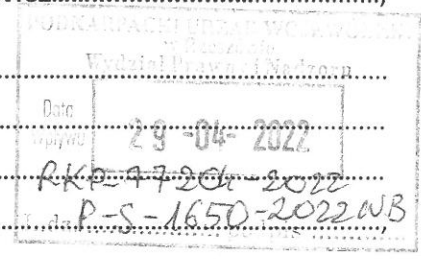 PODKARPACKI URZĄD WOJEWÓDZKI
w Rzeszowie
Wydział Prawny i Nadzoru
Data
wpływu
29 -04- 2022
RKP-77204-2022
P-S-1650-2022 WB